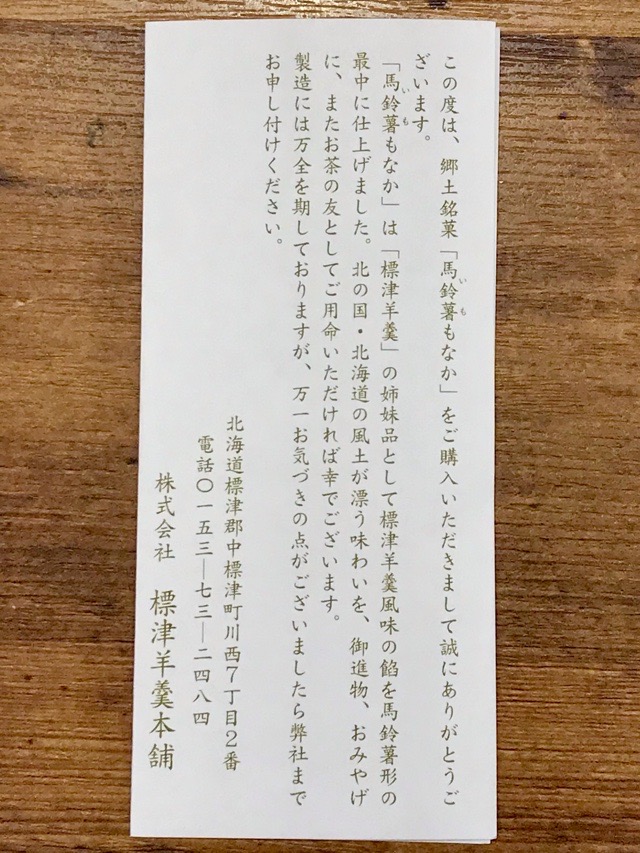 この度は、郷土銘菓「馬鈴薯もなか」をご購入いただきまして誠にありがとうご
いも
ざいます。
「馬鈴薯もなか」は「標津羊羹」の姉妹品として標津羊羹風味の餡を馬鈴薯形の
いも
最中に仕上げました。北の国・北海道の風土が漂う味わいを、御進物、おみやげ
に、またお茶の友としてご用命いただければ幸でございます。
製造には万全を期しておりますが、万一お気づきの点がございましたら弊社まで
お申し付けください。
北海道標津郡中標津町川西7丁目2番
電話〇一五三―七三―二四八四
株式会社 標津羊羹本舗